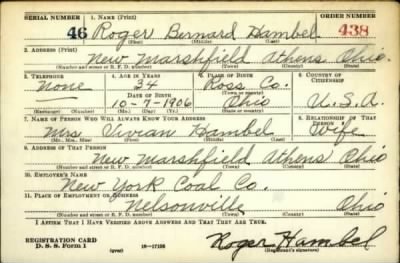 SERIAL NUMBER 1. NAME (Print) ORDER NUMBER
46 Roger Bernard Hambel 438
(First) (Middle) (Last)
2. ADDRESS (Print)
New Marshfield Athens Ohio.
(Number and street or R. F. D. number) (Town) (County) (State)
3. TELEPHONE 4. AGE IN YEARS 5. PLACE OF BIRTH 6. COUNTRY OF CITIZENSHIP
None 34 Ross Co.
DATE OF BIRTH
10-7-1906 Ohio U.S.A.
(Exchange) (Number) (Mo.) (Day) (Yr.) (State or country)
7. NAME OF PERSON WHO WILL ALWAYS KNOW YOUR ADDRESS 8. RELATIONSHIP OF THAT PERSON
Mrs. Vivian Hambel Wife
(Mr., Mrs., Miss) (First) (Middle) (Last)
9. ADDRESS OF THAT PERSON
New Marshfield Athens Ohio
(Number and street or R. F. D. number) (Town) (County) (State)
10. EMPLOYER'S NAME
New York Coal Co.
11. PLACE OF EMPLOYMENT OR BUSINESS
Nelsonville Ohio
(Number and street or R. F. D. number) (Town) (County) (State)
I AFFIRM THAT I HAVE VERIFIED ABOVE ANSWERS AND THAT THEY ARE TRUE.
REGISTRATION CARD
D. S. S. Form 1 (over) 16-17105
Roger Hambel